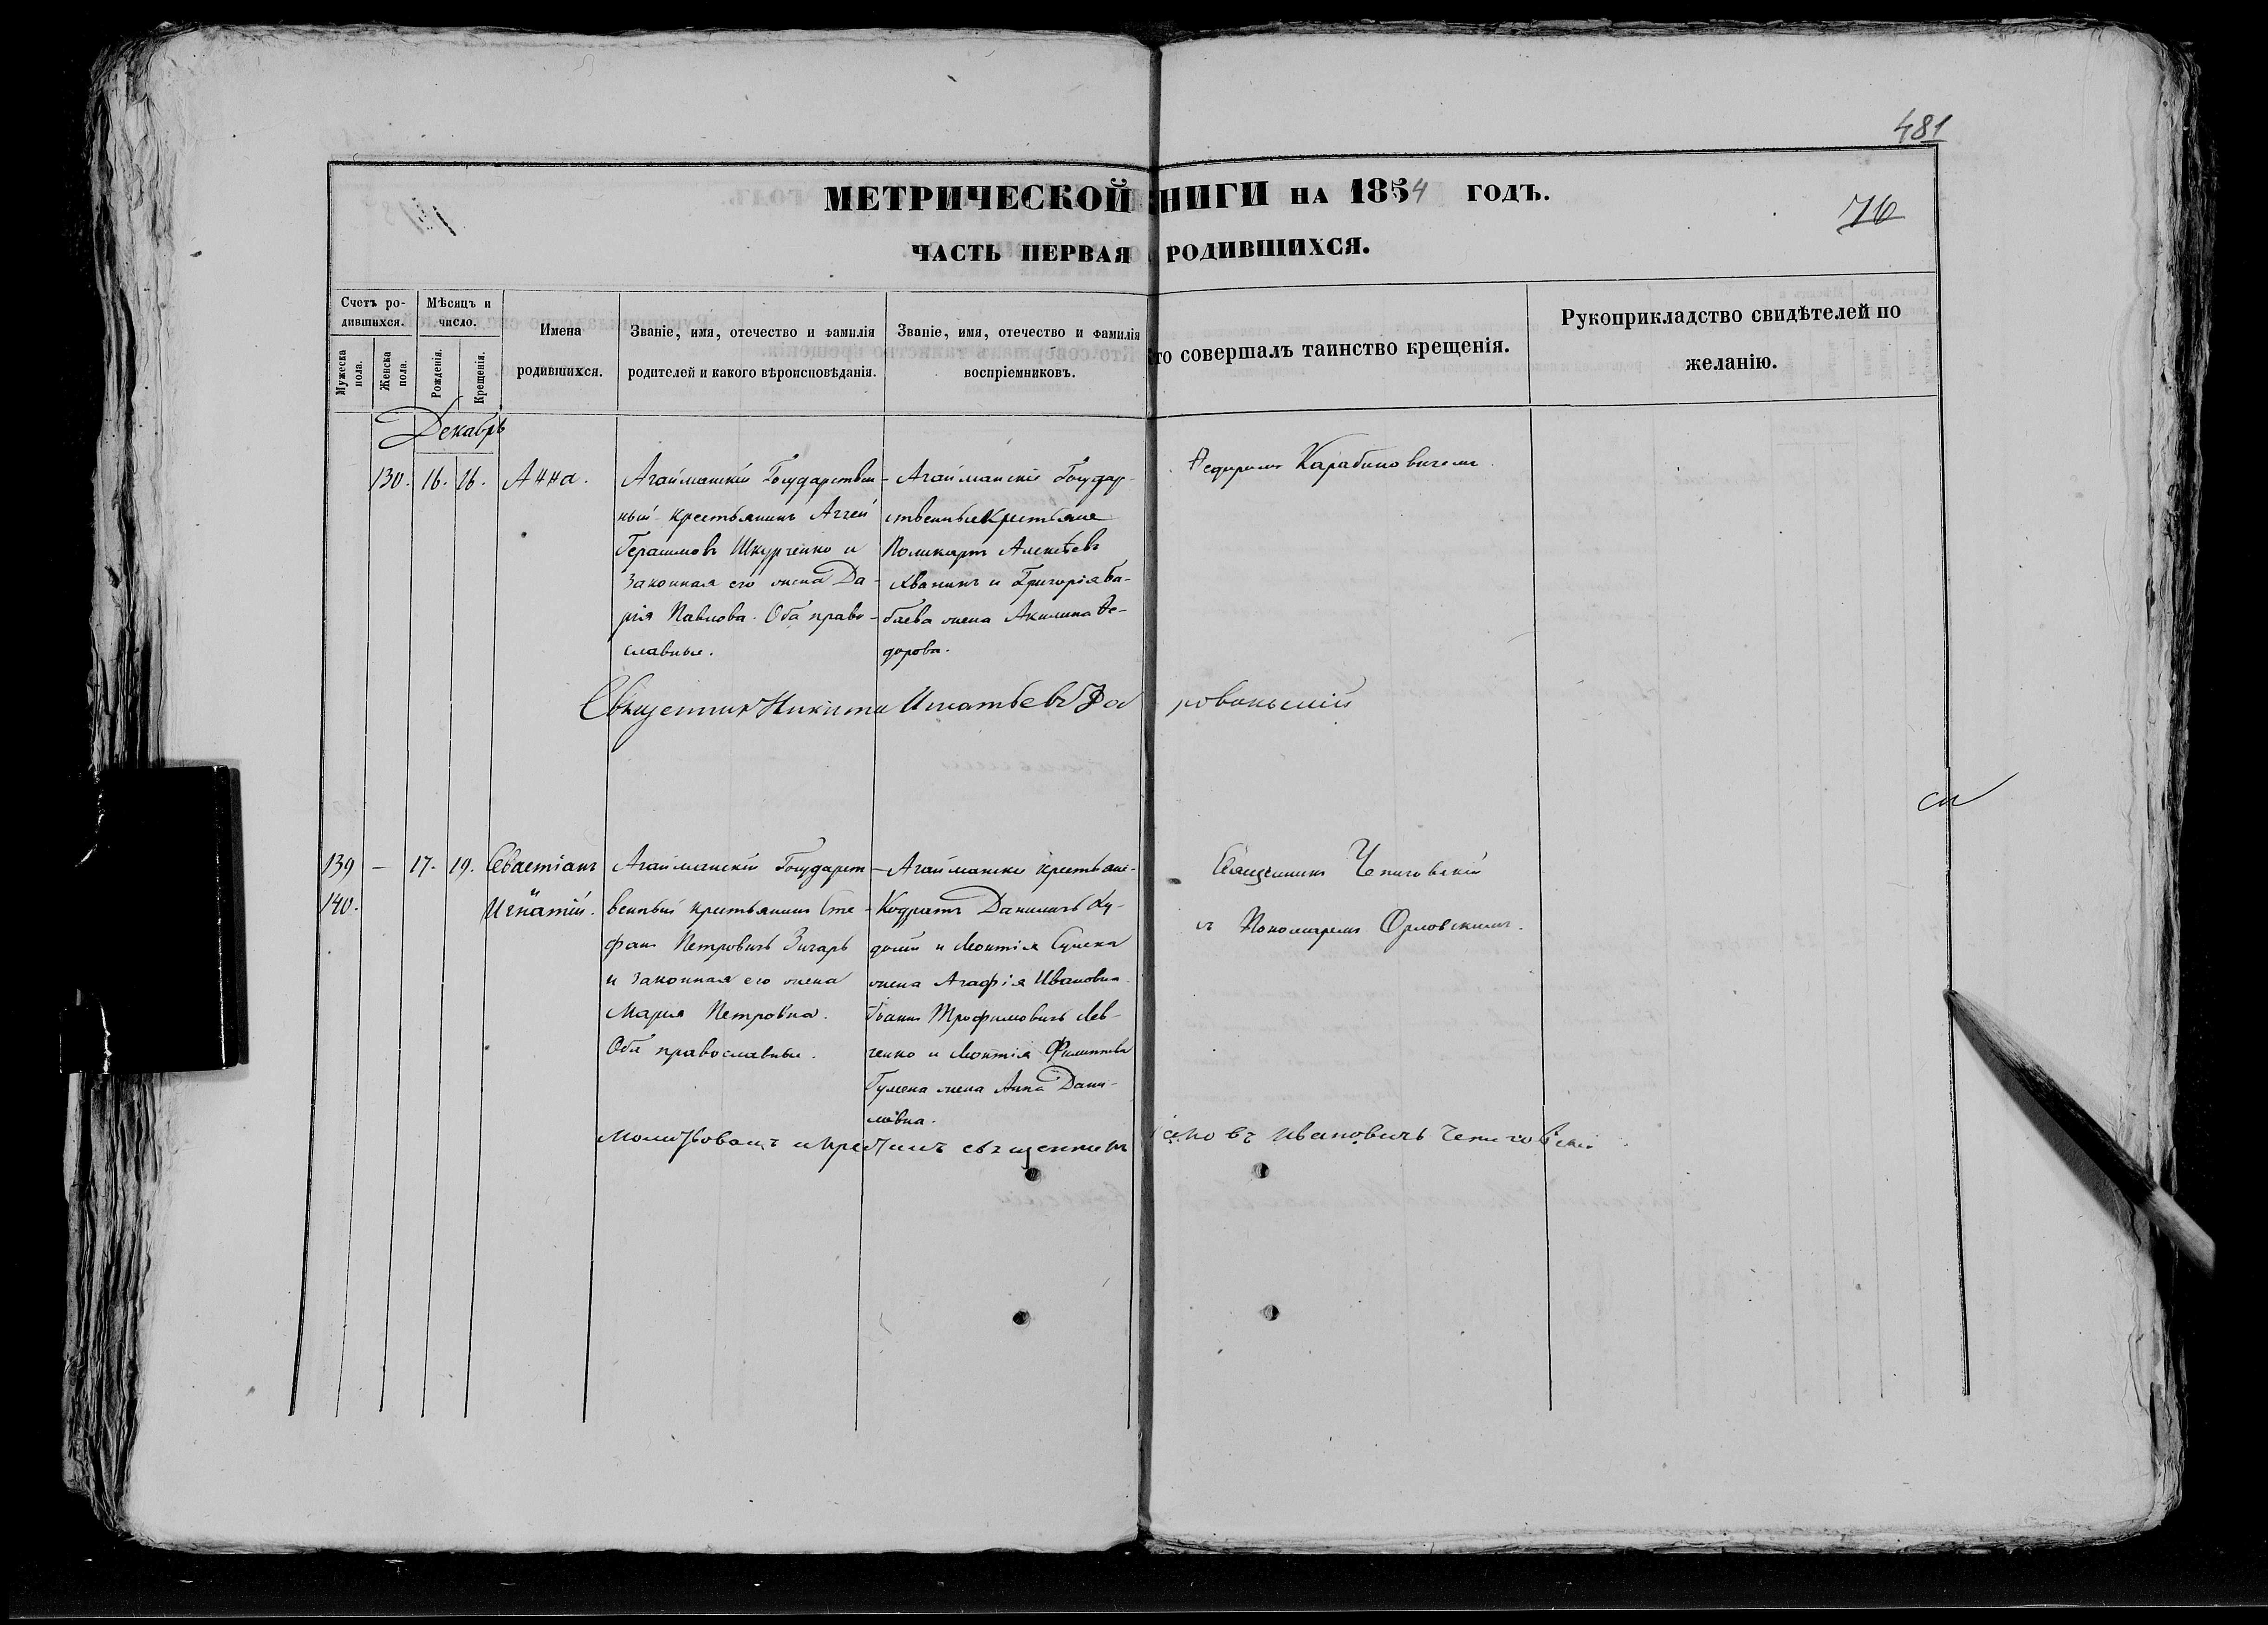 481
МЕТРИЧЕСКОЙ КНИГИ НА 1854 ГОДЪ.
76
ЧАСТЬ ПЕРВАЯ РОДИВШИХСЯ.
Счетъ ро-
дившихся.
Мужеска пола.
Женска пола.
Мѣсяцъ и
число.
Рожденія.
Крещенія.
Имена
родившихся.
Званіе, имя, отечество и фамилія
родителей и какого вѣроисповѣданія.
Званіе, имя, отечество и фамилія
воспріемниковъ.
то совершалъ таинство крещенія.
Рукоприкладство свидѣтелей по
желанію.
Декабрь
130. 16. 16. Анна.
Агайманскій Государствен-
ный крестьянинъ Аггей
Герасимовъ Шкурченко и
Законная его жена Да-
рія Павлова. Оба право-
славные.
Агайманскіе Государ-
ственные Крестьяне
Поликарпъ Алексѣевъ
и Григорія Ба-
баева жена Акилина Ѳе-
дорова.
Ѳедоромъ Карабиновичемъ
Священник Никита Игнатьевъ
139 — 17. 19. Севастіанъ
140. и Игнатій.
Агайманскій Государст-
венный крестьянинъ Сте-
фанъ Петровичъ Зигарь
и законная его жена
Марія Петровна.
Оба православные.
Агайманскіе крестьяне-
Кодратъ Даниловъ Ху-
долій и Леонтія Гумена
жена Агафія Ивановна
Іоаннъ Трофимовичъ Лев-
ченко и Леонтія Филиппова
Гумена жена Анна Дани-
ловна.
Священникъ Чениговскій
съ Пономаремъ Орловскимъ.
Молитвовалъ и крестилъ священникъ Іаковъ Ивановичъ Чениговскій